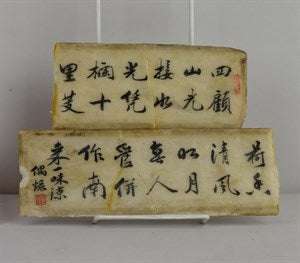 四顧
山光
接水
光凭
欄十
里芰
荷香
清風
明月
無人
管併
作南
来味涼